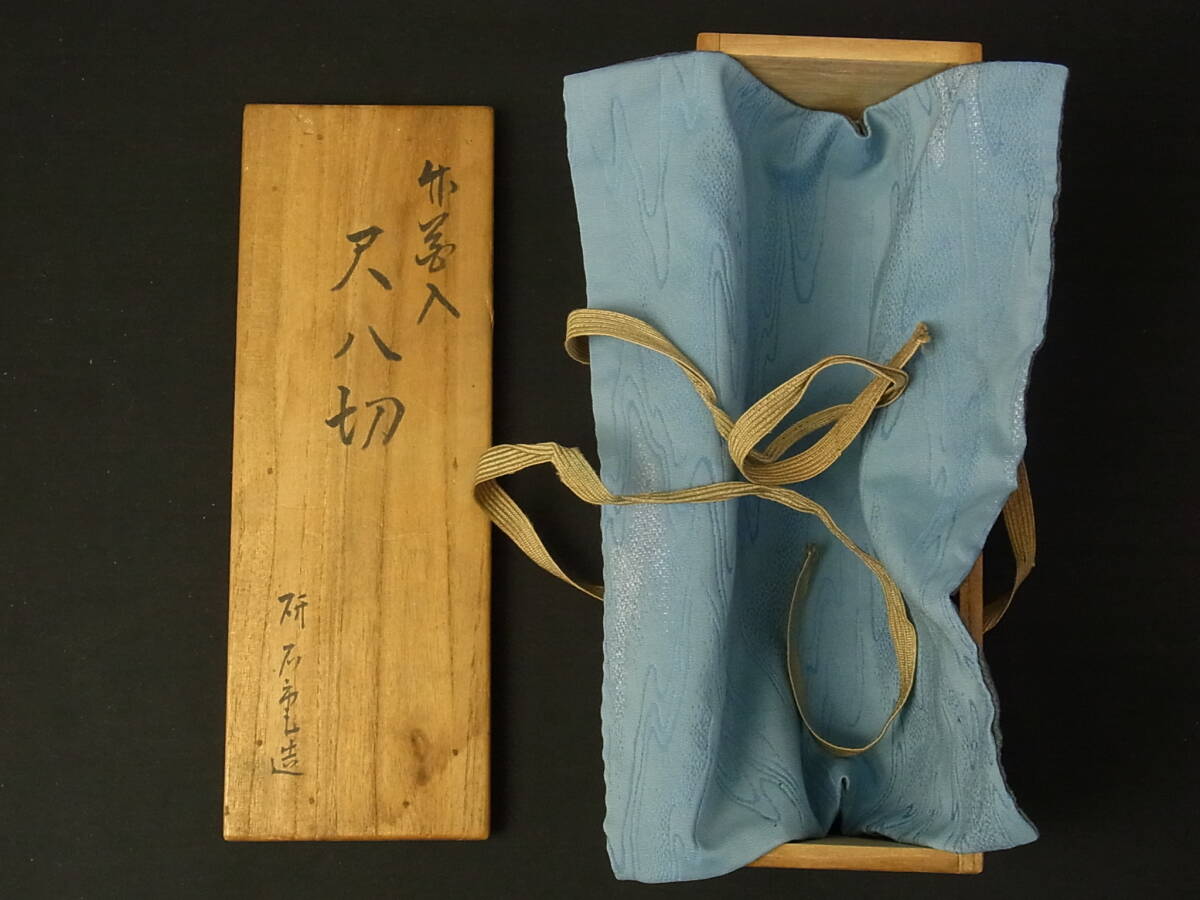 竹花入
尺八切
研石電造